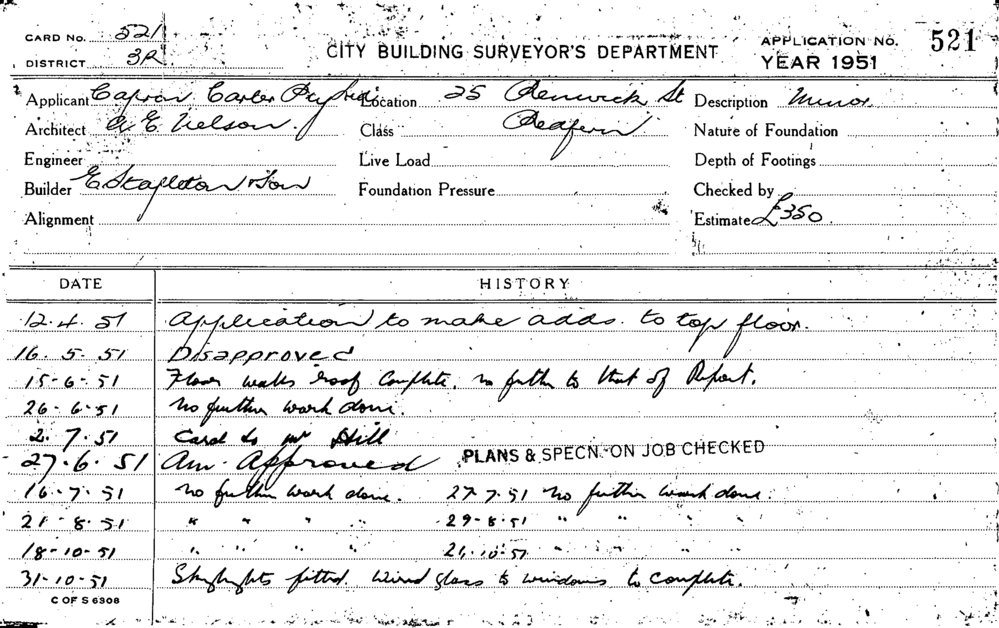 CARD NO. 521
DISTRICT 3R
CITY BUILDING SURVEYOR'S DEPARTMENT
APPLICATION NO. 521
YEAR 1951
Applicant Capron Carter Pty Ltd Location 25 Renwick St Description Minor
Architect A. E. Nelson. Class Redfern Nature of Foundation
Engineer Live Load Depth of Footings
Builder E Stapleton & Son Foundation Pressure Checked by
Alignment Estimate £350
DATE HISTORY
12.4.51 Application to make adds. to top floor.
16.5.51 Disapproved
15-6-51 Floor walls roof complete. no further to that of Report.
26-6-51 no further work done.
2.7.51 Card to Mr Hill
27.6.51 Am. Approved PLANS & SPECN. ON JOB CHECKED
16-7-51 no further work done. 27.7.51 no further work done.
21-8-51 " " " " 29-8-51 " " " "
18-10-51 " " " " 26.10.51 " " " "
31-10-51 Skylights fitted. Wired glass to windows to complete.
C OF S 6308